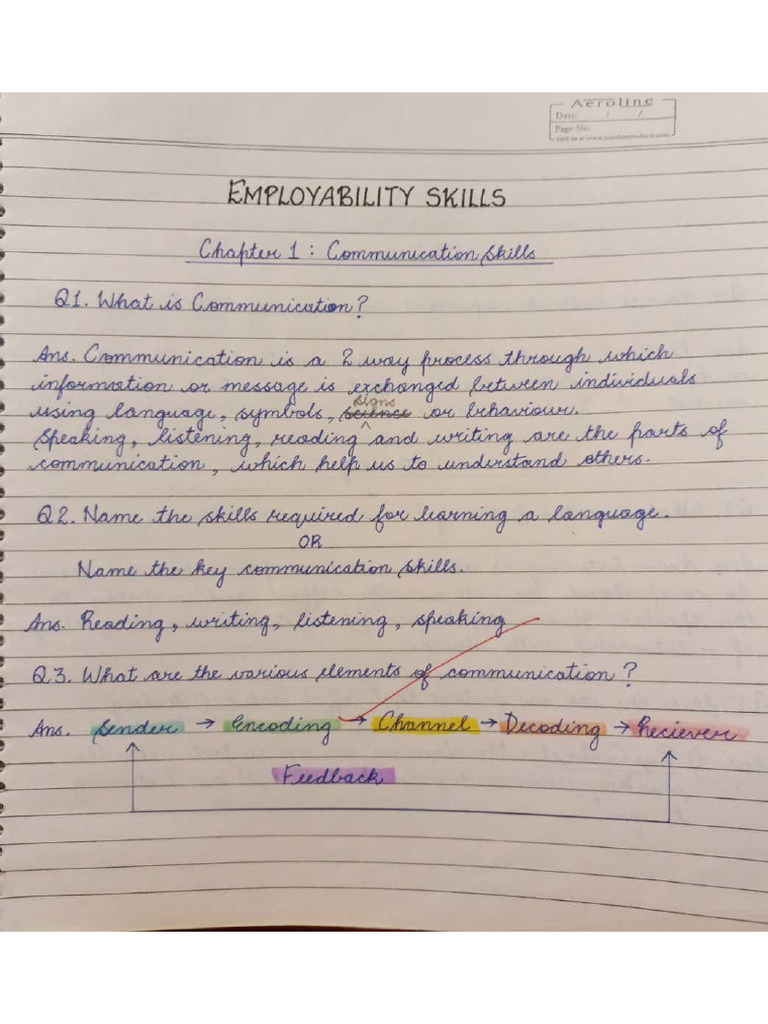 Aeroline
Date: / /
Page No:
EMPLOYABILITY SKILLS
Chapter 1 : Communication Skills
Q1. What is Communication?
Ans. Communication is a 2 way process through which
information or message is exchanged between individuals
signs
using language, symbols, science or behaviour.
Speaking, listening, reading and writing are the parts of
communication, which help us to understand others.
Q2. Name the skills required for learning a language.
OR
Name the key communication skills.
Ans. Reading, writing, listening, speaking
Q3. What are the various elements of communication?
Ans. Sender → Encoding → Channel → Decoding → Reciever
Feedback